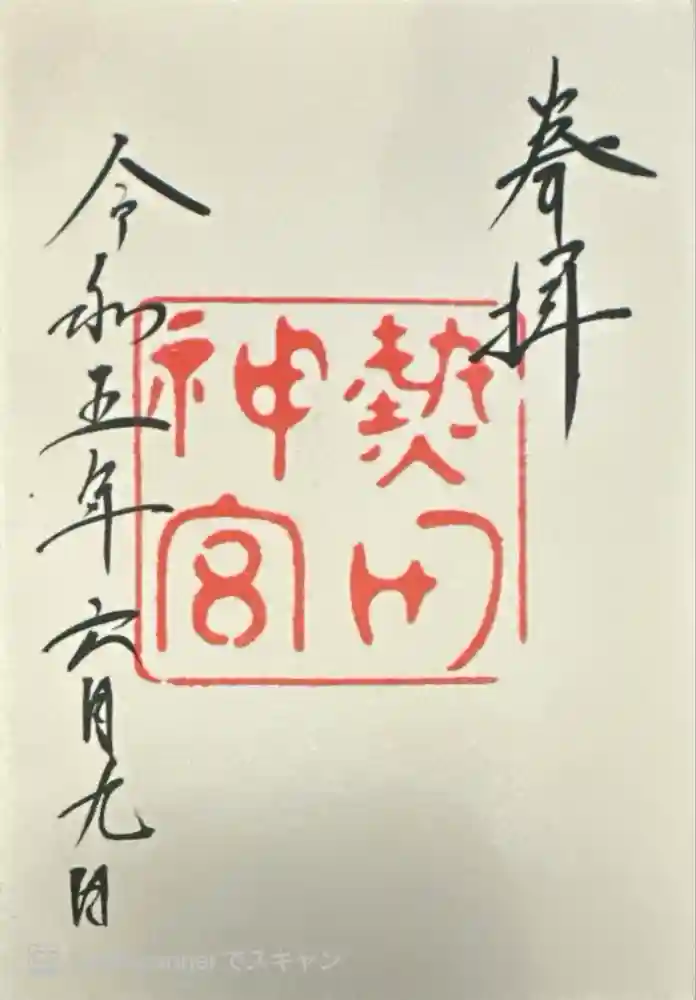 奉拝
熱田
神宮
令和五年六月九日
でスキャン